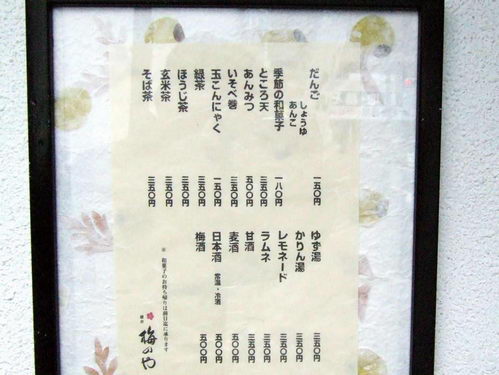 だんご
しょうゆ
あんこ
一五〇円
季節の和菓子 一八〇円
ところ天 三五〇円
あんみつ 五〇〇円
いそべ巻 三五〇円
玉こんにゃく 一五〇円
緑茶 三五〇円
ほうじ茶 三五〇円
玄米茶 三五〇円
そば茶 三五〇円
ゆず湯 三五〇円
かりん湯 三五〇円
レモネード 三五〇円
ラムネ 三五〇円
甘酒 三五〇円
麦酒 五〇〇円
日本酒 常温・冷酒 五〇〇円
梅酒 五〇〇円
※ 和菓子のお持ち帰りは前日迄に承ります
梅のや